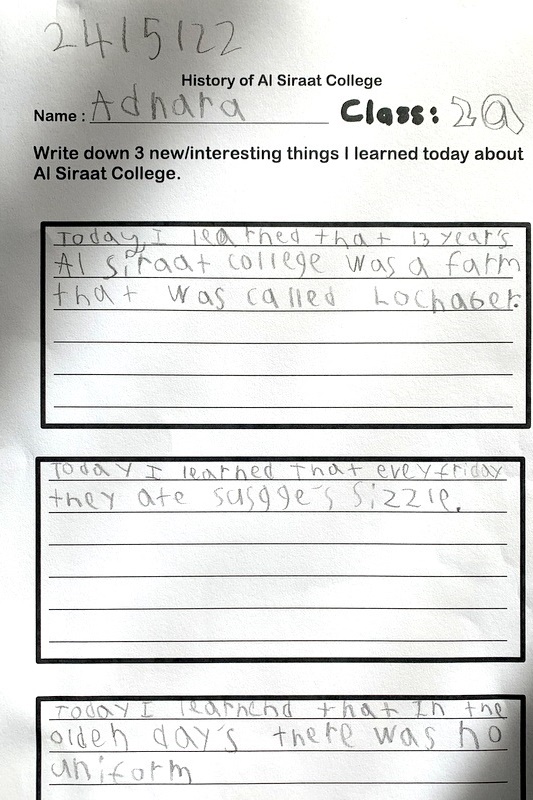 24/5/22
History of Al Siraat College
Name : Adnara Class: 2a
Write down 3 new/interesting things I learned today about
Al Siraat College.
Today, I learned that 13 year's
Al siraat college was a farm
that was called Lochaber.
Today I learned that evey friday
they ate sasgge's Sizzle.
Today I learnend that In the
olden day's there was no
uniform